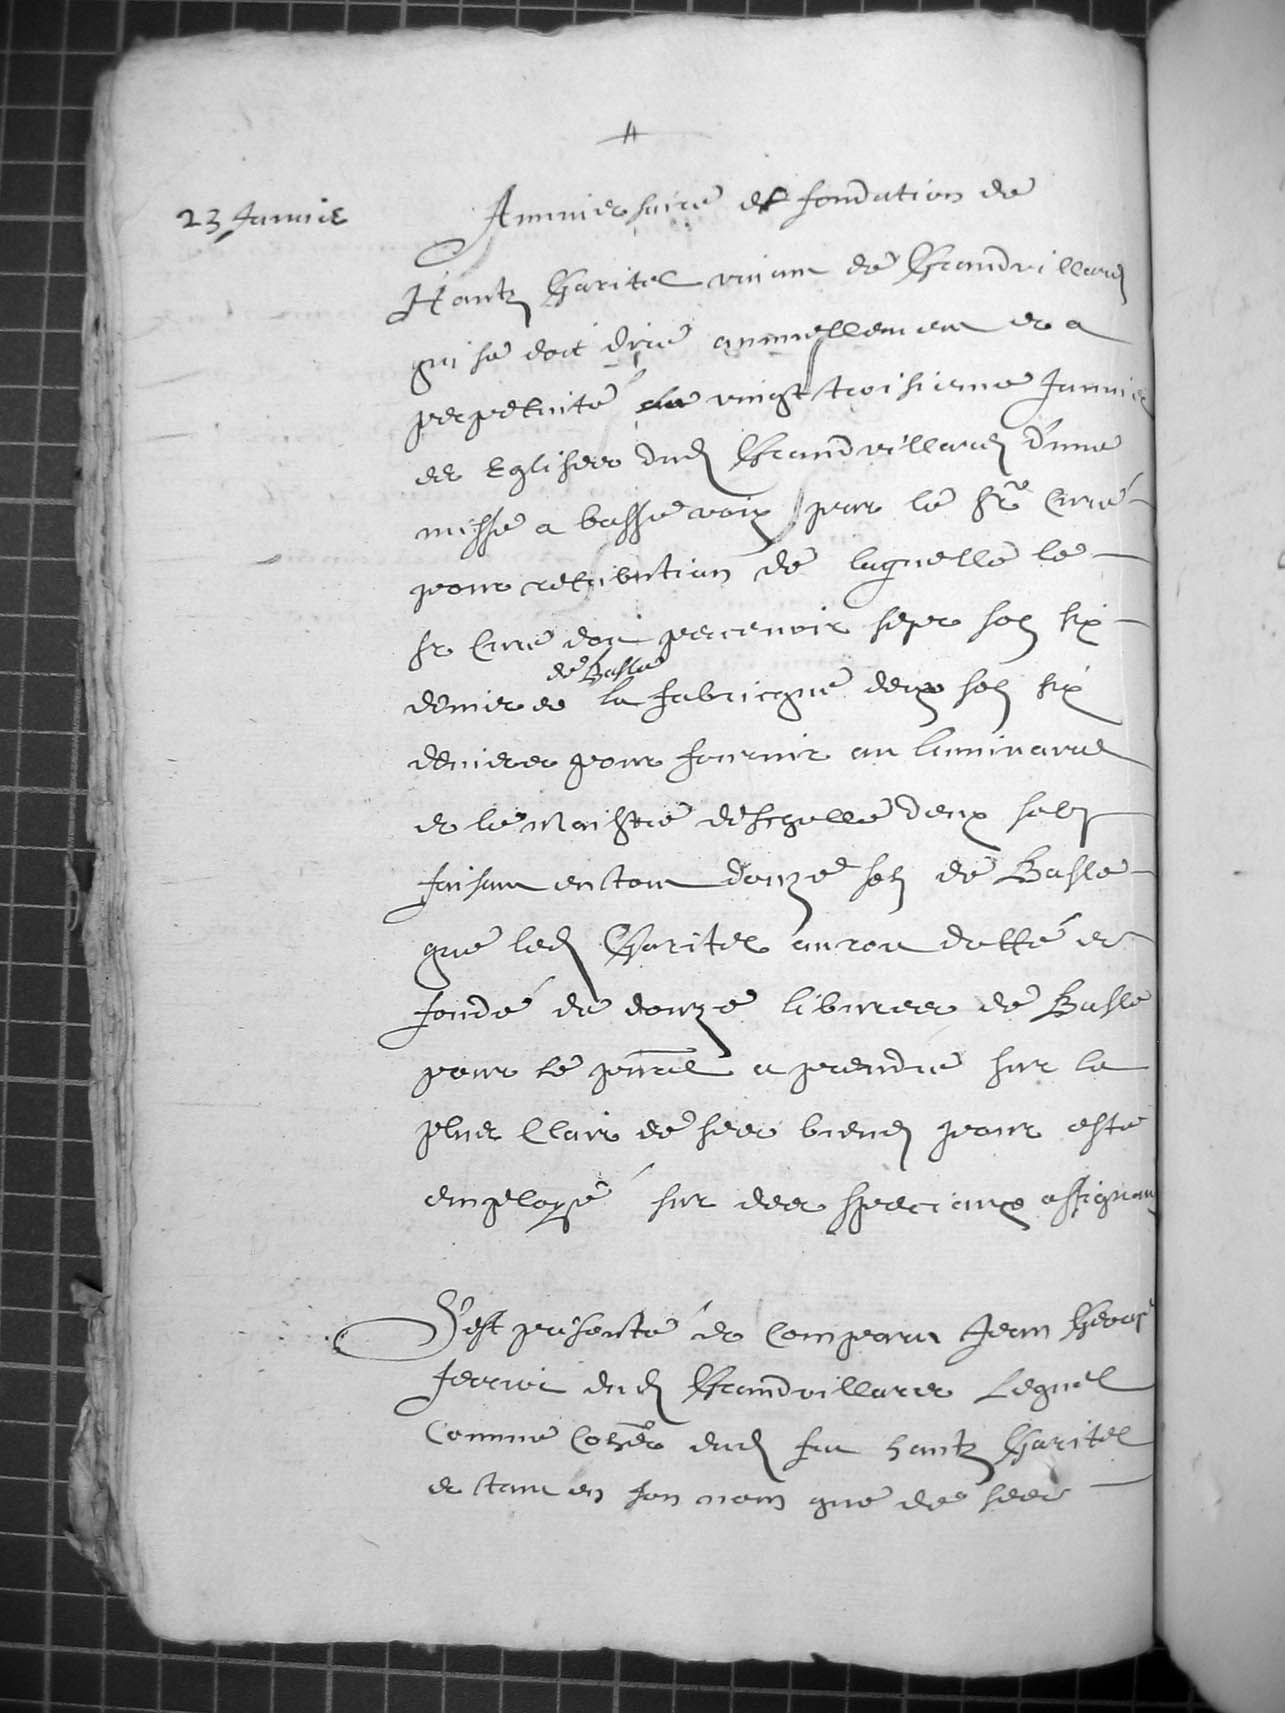 23 Januie
Anniversaire et fondation de
Hantz Garitel vivant de Grandvillard
qui se doit dire annuellement et a
perpetuité le vingt troisiesme Januie
es Eglises dud Grandvillard d'une
messe a basse voix par le Sr Curé
pour retribution de laquelle le
Sr Cure doit percevoir sept solz six
de Basle
denier et la fabricque deux solz six
deniers pour fournir au luminaire
et le Maistre d'eschelle deux solz
faisant en tout douze solz de Basle
que led Garitel auroit dotté et
fondé de douze libvres de Basle
pour le pnal a prendre sur le
plus Clair de ses biens pour estre
employé sur des speciaux assignaux
S'est présenté et Comparu Jean
dud Grandvillars Lequel
Comme dud feu hantz Garitel
et tant en son nom que de ses